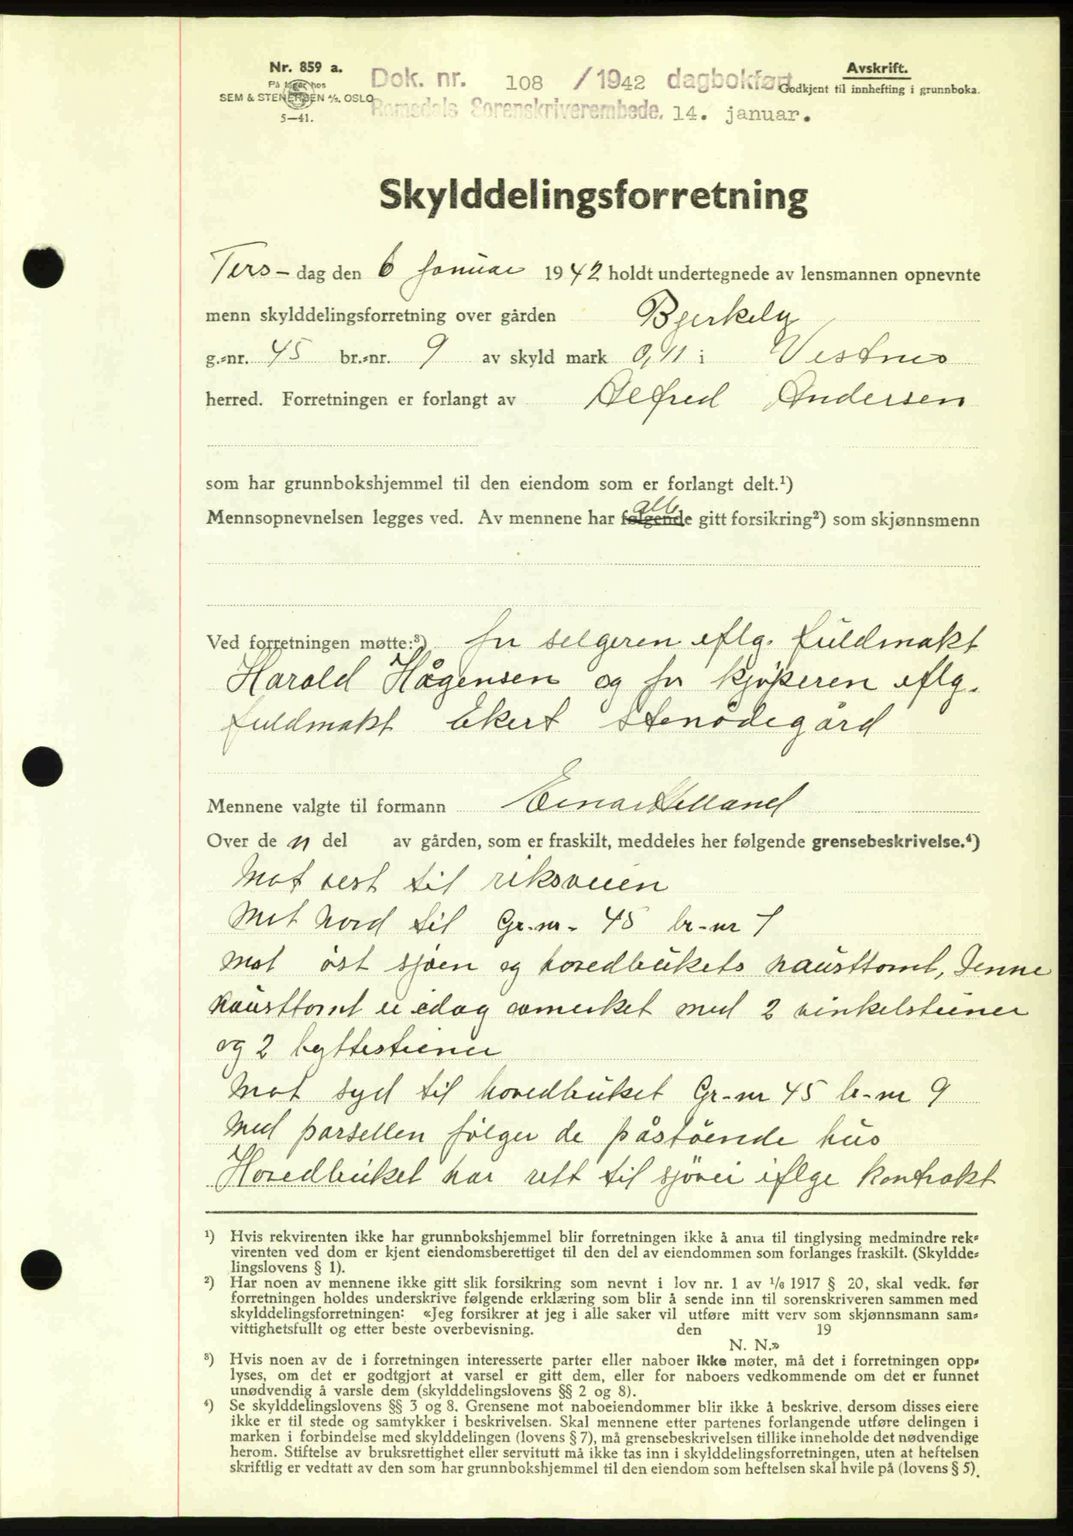 Nr. 859 a.
På lager hos
SEM & STENERSEN A/S. OSLO
5—41.
Dok. nr. 108 / 1942 dagbokført
Romsdals Sorenskriverembede. 14. januar.
Avskrift.
Godkjent til innhefting i grunnboka.
Skylddelingsforretning
Tirs-dag den 6 januar 1942 holdt undertegnede av lensmannen opnevnte
menn skylddelingsforretning over gården Bjerkely
g.-nr. 45 br.-nr. 9 av skyld mark 0,11 i Vestnes
herred. Forretningen er forlangt av Alfred Andersen
som har grunnbokshjemmel til den eiendom som er forlangt delt.¹)
Mennsopnevnelsen legges ved. Av mennene har følgende alle gitt forsikring²) som skjønnsmenn
Ved forretningen møtte:³) for selgeren iflg. fuldmakt
Harald Hågensen og for kjøperen iflg.
fuldmakt Ekert Stenødegård
Mennene valgte til formann Einar Helland
Over de n del av gården, som er fraskilt, meddeles her følgende grensebeskrivelse.⁴)
Mot vest til riksveien
Mot Nord til Gr.nr. 45 br-nr 1
Mot øst sjøen og hovedbrukets nausttomt, Denne
nausttomt er idag avmerket med 2 vinkelsteiner
og 2 byttesteiner
Mot syd til hovedbruket Gr-nr 45 br-nr 9
Med parsellen følger de påstående hus
Hovedbruket har rett til sjøvei iflge kontrakt
¹) Hvis rekvirenten ikke har grunnbokshjemmel blir forretningen ikke å anta til tinglysing medmindre rek-
virenten ved dom er kjent eiendomsberettiget til den del av eiendommen som forlanges fraskilt. (Skyldde-
lingslovens § 1).
²) Har noen av mennene ikke gitt slik forsikring som nevnt i lov nr. 1 av 1/6 1917 § 20, skal vedk. før
forretningen holdes underskrive følgende erklæring som blir å sende inn til sorenskriveren sammen med
skylddelingsforretningen: «Jeg forsikrer at jeg i alle saker vil utføre mitt verv som skjønnsmann sam-
vittighetsfullt og etter beste overbevisning. den 19
N. N.»
³) Hvis noen av de i forretningen interesserte parter eller naboer ikke møter, må det i forretningen opp-
lyses, om det er godtgjort at varsel er gitt dem, eller for naboers vedkommende om det er funnet
unødvendig å varsle dem (skylddelingslovens §§ 2 og 8).
⁴) Se skylddelingslovens §§ 3 og 8. Grensene mot naboeiendommer blir ikke å beskrive, dersom disses eiere
ikke er til stede og samtykker i beskrivelsen. Skal mennene etter partenes forlangende utføre delingen i
marken i forbindelse med skylddelingen (lovens § 7), må grensebeskrivelsen tillike inneholde det nødvendige
herom. Stiftelse av bruksrettighet eller servitutt må ikke tas inn i skylddelingsforretningen, uten at heftelsen
skriftlig er vedtatt av den som har grunnbokshjemmel til den eiendom som heftelsen skal hvile på (lovens § 5).